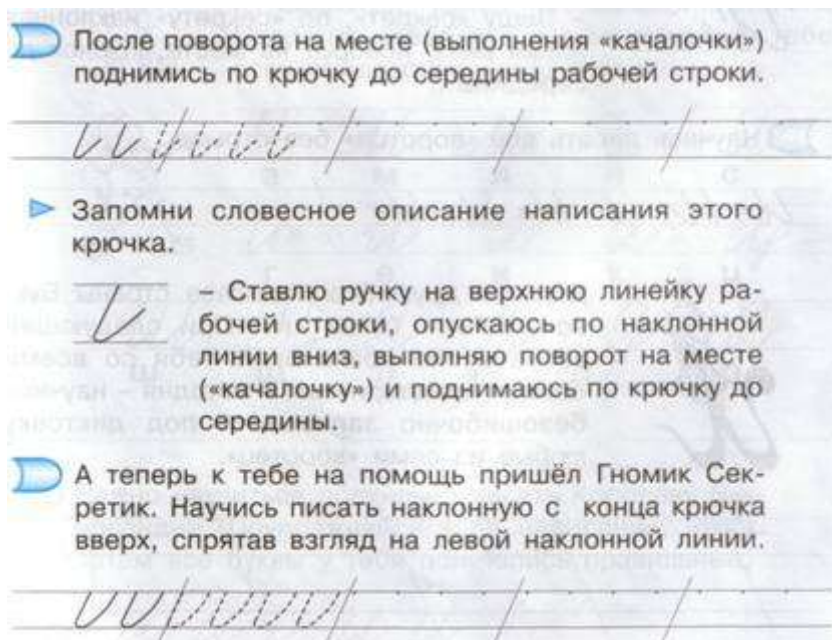 После поворота на месте (выполнения «качалочки»)
поднимись по крючку до середины рабочей строки.
Запомни словесное описание написания этого
крючка.
– Ставлю ручку на верхнюю линейку ра-
бочей строки, опускаюсь по наклонной
линии вниз, выполняю поворот на месте
(«качалочку») и поднимаюсь по крючку до
середины.
А теперь к тебе на помощь пришёл Гномик Сек-
ретик. Научись писать наклонную с конца крючка
вверх, спрятав взгляд на левой наклонной линии.